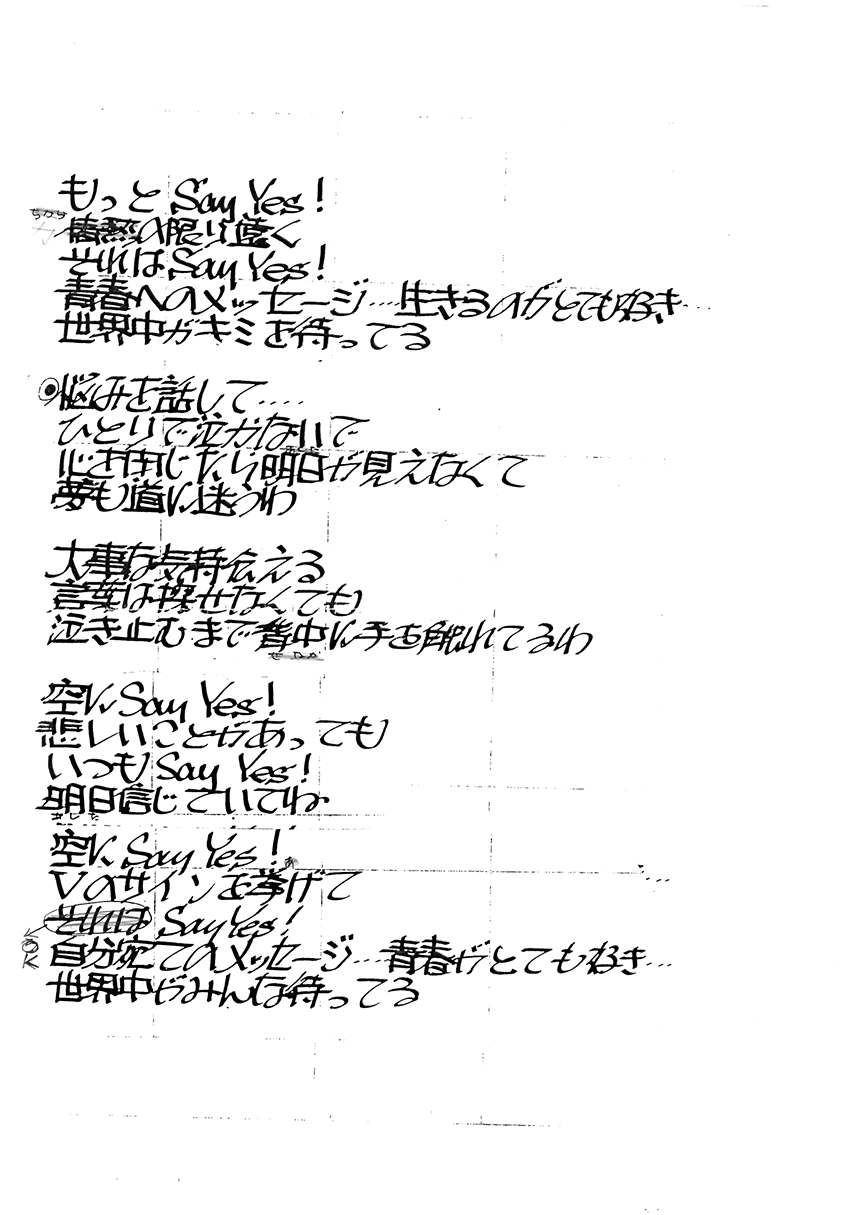 もっと Say Yes!
ちから
力 情熱の限り遠く
それは Say Yes!
青春へのメッセージ…生きるのがとても好き…
世界中がキミを待ってる
悩みを話して‥‥
ひとりで泣かないで
心を閉じたら明日が見えなくて
夢も道に迷うわ
大事な気持伝える
言葉は探せなくても
泣き止むまで背中に手を触れてるわ
せなか
空に Say Yes!
悲しいことがあっても
いつも Say Yes!
明日信じていてね
あした
空に Say Yes!
あ
Vのサインを挙げて
それは Say Yes!
OK
自分宛てのメッセージ…青春がとても好き…
世界中がみんな待ってる